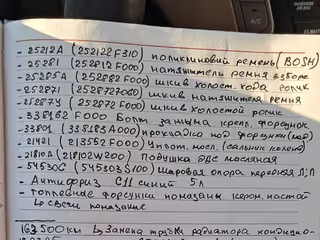 - 25212A (252122F310) поликлиновый ремень (BOSH)
- 25281 (252812F000) натяжитель ремня в сборе
- 25285A (252882F000) шкив холост. хода ролик
- 252871 (2528727050) шкив натяжителя ремня
- 25287Y (252872F000) шкив холостой ролик
- 338162F000 Болт зажима креп. форсунок
- 33801 (338183A000) прокладка под форсунки
- 21421 (213552F000) Уплот. мосл. (сальник колен)
- 21810A (218102W200) Подушка ДВС масляная
- 54530C (545303S100) Шаровая опора передняя Л/П
- Антифриз C11 синий 5л
- топливные форсунки помазаны керам. пастой
и свечи
163500км Замена трубки радиатора кондицио-